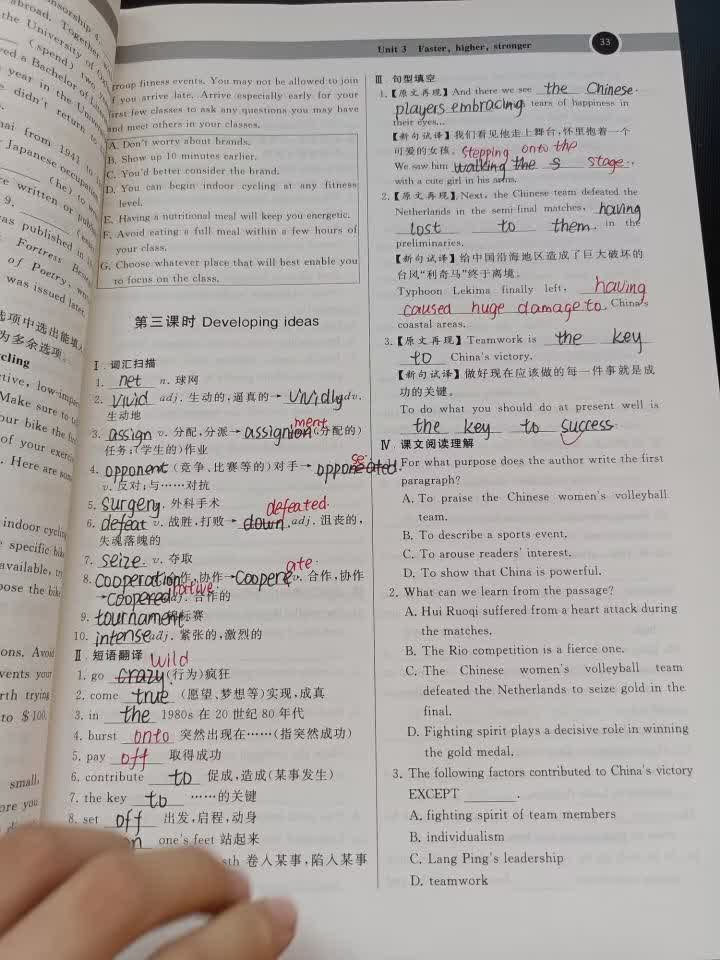 onsorship
abroad. Together
the University of
(spend) two
ved a Bachelor of
year in the Univer
didn't return to
hai from 1941 to
Japanese occupation
(he) to
re written or publi
9.
was published in
Fortress
of Poetry,
was issued later.
选项中选出能填入
为多余选项。
cling
ctive, low-impa
Make sure to
our bike the
of your exerci
. Here are some
indoor cycling
specific bik
available,
pose the bike
ons. Avoid
vents your
rth trying
to $100.
small,
ore you
Unit 3 Faster, higher, stronger
33
group fitness events. You may not be allowed to join
if you arrive late. Arrive especially early for your
first few classes to ask any questions you may have
and meet others in your classes.
A. Don't worry about brands.
B. Show up 10 minutes earlier.
C. You'd better consider the brand.
D. You can begin indoor cycling at any fitness
level.
E. Having a nutritional meal will keep you energetic.
F. Avoid eating a full meal within a few hours of
your class.
G. Choose whatever place that will best enable you
to focus on the class.
第三课时 Developing ideas
Ⅰ. 词汇扫描
1. net n. 球网
2. vivid adj. 生动的,逼真的→ vividly adv.
生动地
ment
3. assign v. 分配,分派→ assignion (分配的)
任务;(学生的)作业
se
4. opponent (竞争、比赛等的)对手→ opponeated.
v. 反对;与……对抗
5. surgery. 外科手术
defeated.
6. defeat v. 战胜,打败→ down. adj. 沮丧的,
失魂落魄的
7. seize. v. 夺取
ate.
8. cooperation 作,协作→ Coopere v. 合作,协作
→ Coopered adj. 合作的
9. tournament 锦标赛
10. intense adj. 紧张的,激烈的
Ⅱ. 短语翻译
wild
1. go crazy. (行为)疯狂
2. come true (愿望、梦想等)实现,成真
3. in the 1980s 在 20 世纪 80 年代
4. burst onto 突然出现在……(指突然成功)
5. pay off 取得成功
6. contribute to 促成,造成(某事发生)
7. the key to ……的关键
8. set off 出发,启程,动身
one's feet 站起来
sth 卷入某事,陷入某事
Ⅲ. 句型填空
1.【原文再现】And there we see the Chinese
players embracing tears of happiness in
their eyes...
【新句试译】我们看见他走上舞台,怀里抱着一个
可爱的女孩。 Stepping onto the
We saw him walking the s stage.,
with a cute girl in his arms.
2.【原文再现】Next, the Chinese team defeated the
Netherlands in the semi-final matches, having
lost to them. in the
preliminaries.
【新句试译】给中国沿海地区造成了巨大破坏的
台风“利奇马”终于离境。
Typhoon Lekima finally left, having
caused huge damage to. China's
coastal areas.
3.【原文再现】Teamwork is the key
to China's victory.
【新句试译】做好现在应该做的每一件事就是成
功的关键。
To do what you should do at present well is
the key to success.
Ⅳ. 课文阅读理解
For what purpose does the author write the first
paragraph?
A. To praise the Chinese women's volleyball
team.
B. To describe a sports event.
C. To arouse readers' interest.
D. To show that China is powerful.
2. What can we learn from the passage?
A. Hui Ruoqi suffered from a heart attack during
the matches.
B. The Rio competition is a fierce one.
C. The Chinese women's volleyball team
defeated the Netherlands to seize gold in the
final.
D. Fighting spirit plays a decisive role in winning
the gold medal.
3. The following factors contributed to China's victory
EXCEPT ______.
A. fighting spirit of team members
B. individualism
C. Lang Ping's leadership
D. teamwork